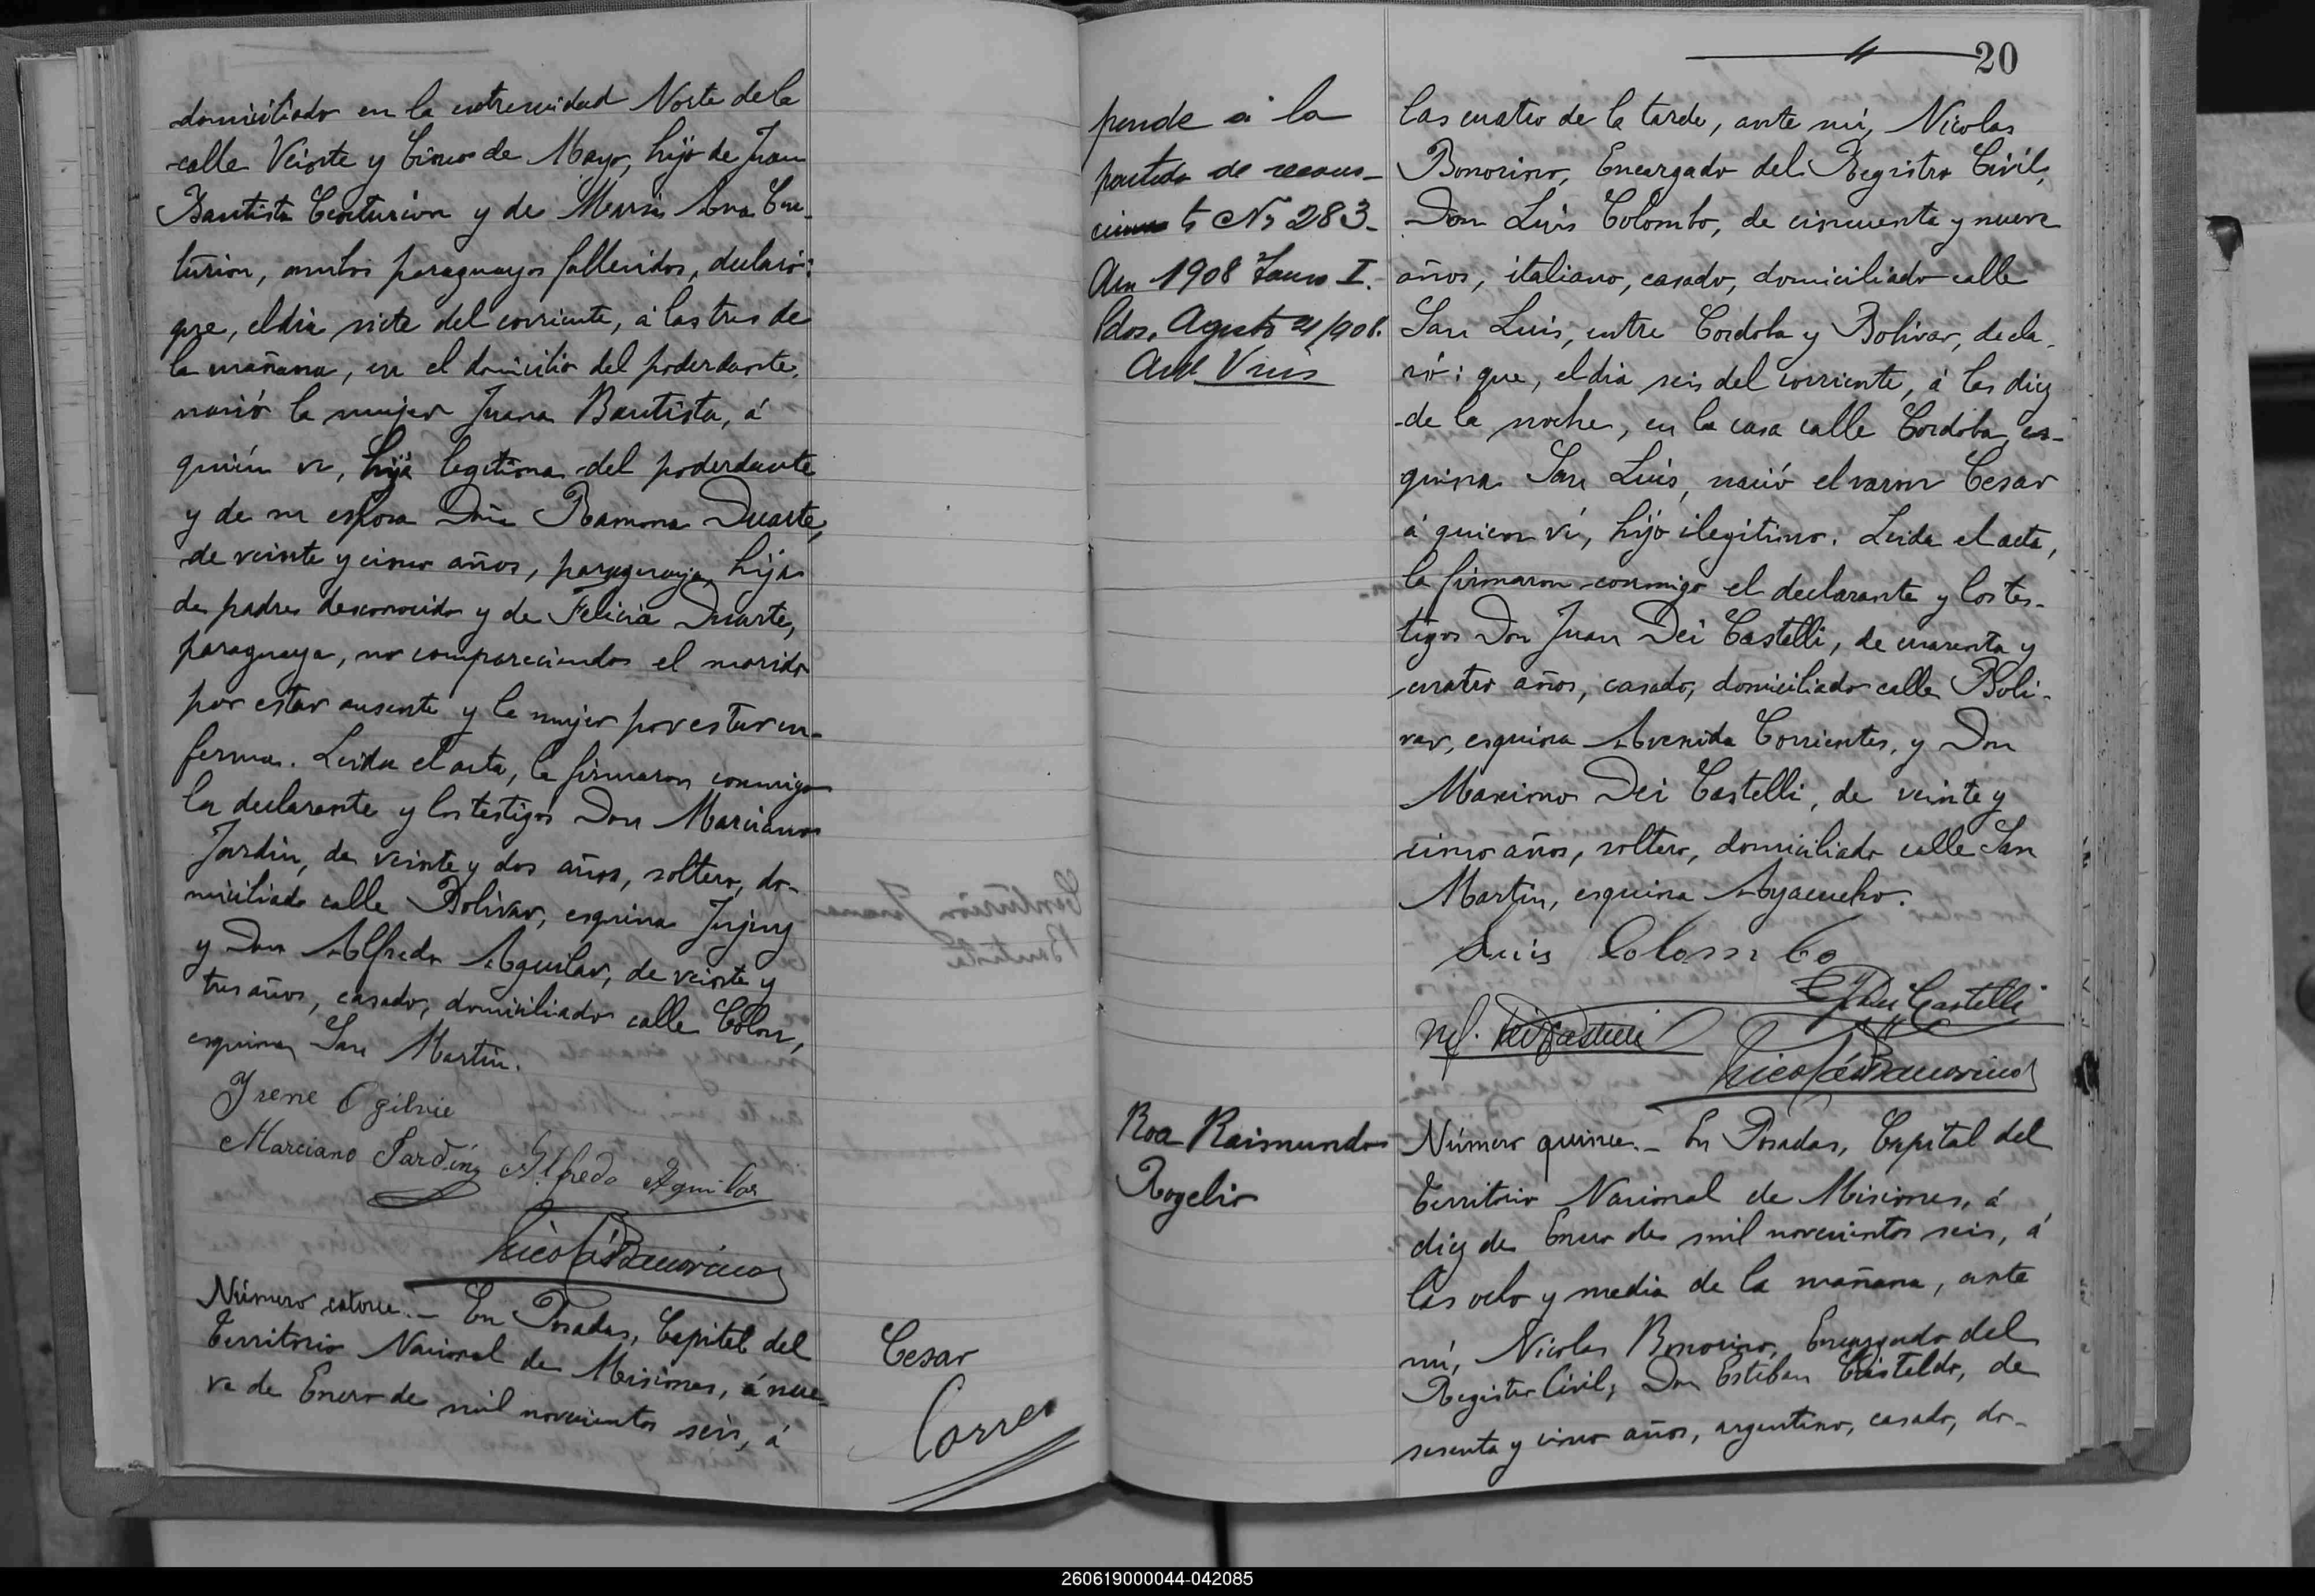 domiciliado en la extremidad Norte de la
calle Veinte y Cinco de Mayo, hijo de Juan
Bautista Centurion y de Maria Ana Cen-
turion, ambos paraguayos fallecidos, declaró:
que, el dia siete del corriente, á las tres de
la mañana, en el domicilio del poderdante,
nació la mujer Juana Bautista, á
quién ví, hija legitima del poderdante
y de su esposa Doña Ramona Duarte,
de veinte y cinco años, paraguaya, hija
de padre desconocido y de Felicia Duarte,
paraguaya, no compareciendo el marido
por estar ausente y la mujer por estar en-
ferma. Leida el acta, la firmaron conmigo
la declarante y los testigos Don Marciano
Jardin, de veinte y dos años, soltero, do-
miciliado calle Bolivar, esquina Jujuy
y Don Alfredo Aguilar, de veinte y
tres años, casado, domiciliado calle Colon,
esquina San Martin.
Irene Ogilvie
Marciano Jardín Alfredo Aguilar
Nicolás Bonorino
Número catorce.- En Posadas, Capital del
Territorio Nacional de Misiones, á nue-
ve de Enero de mil novecientos seis, á
Cesar
Corres
pende a la
partida de recono-
cimiento No 283.
Año 1908 Tomo I.
Pdas. Agosto 21/908.
20
las cuatro de la tarde, ante mí, Nicolas
Bonorino, Encargado del Registro Civil,
Don Luis Colombo, de cincuenta y nueve
años, italiano, casado, domiciliado calle
San Luis, entre Cordoba y Bolivar, decla-
ró: que, el dia seis del corriente, á las diez
de la noche, en la casa calle Cordoba, es-
quina San Luis, nació el varon Cesar
á quien ví, hijo ilegitimo. Leida el acta,
la firmaron conmigo el declarante y los tes-
tigos Don Juan Dei Castelli, de cuarenta y
cuatro años, casado, domiciliado calle Boli-
var, esquina Avenida Corrientes, y Don
Maximo Dei Castelli, de veinte y
cinco años, soltero, domiciliado calle San
Martin, esquina Ayacucho.
Luis Colombo
Dei Castelli
M. Dei Castelli
Nicolás Bonorino
Roa Raimundo
Rogelio
Número quince.- En Posadas, Capital del
Territorio Nacional de Misiones, á
diez de Enero de mil novecientos seis, á
las ocho y media de la mañana, ante
mí, Nicolas Bonorino, Encargado del
Registro Civil, Don Esteban Cristaldo, de
sesenta y cinco años, argentino, casado, do-
260619000044-042085